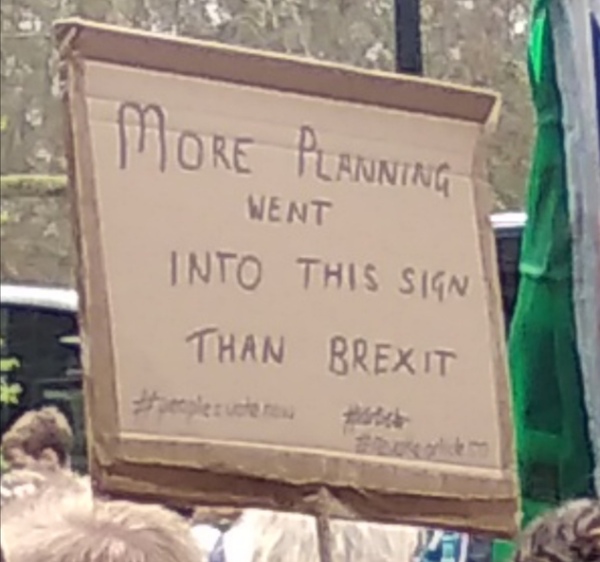 MORE PLANNING
WENT
INTO THIS SIGN
THAN BREXIT
#peoplesvotenow